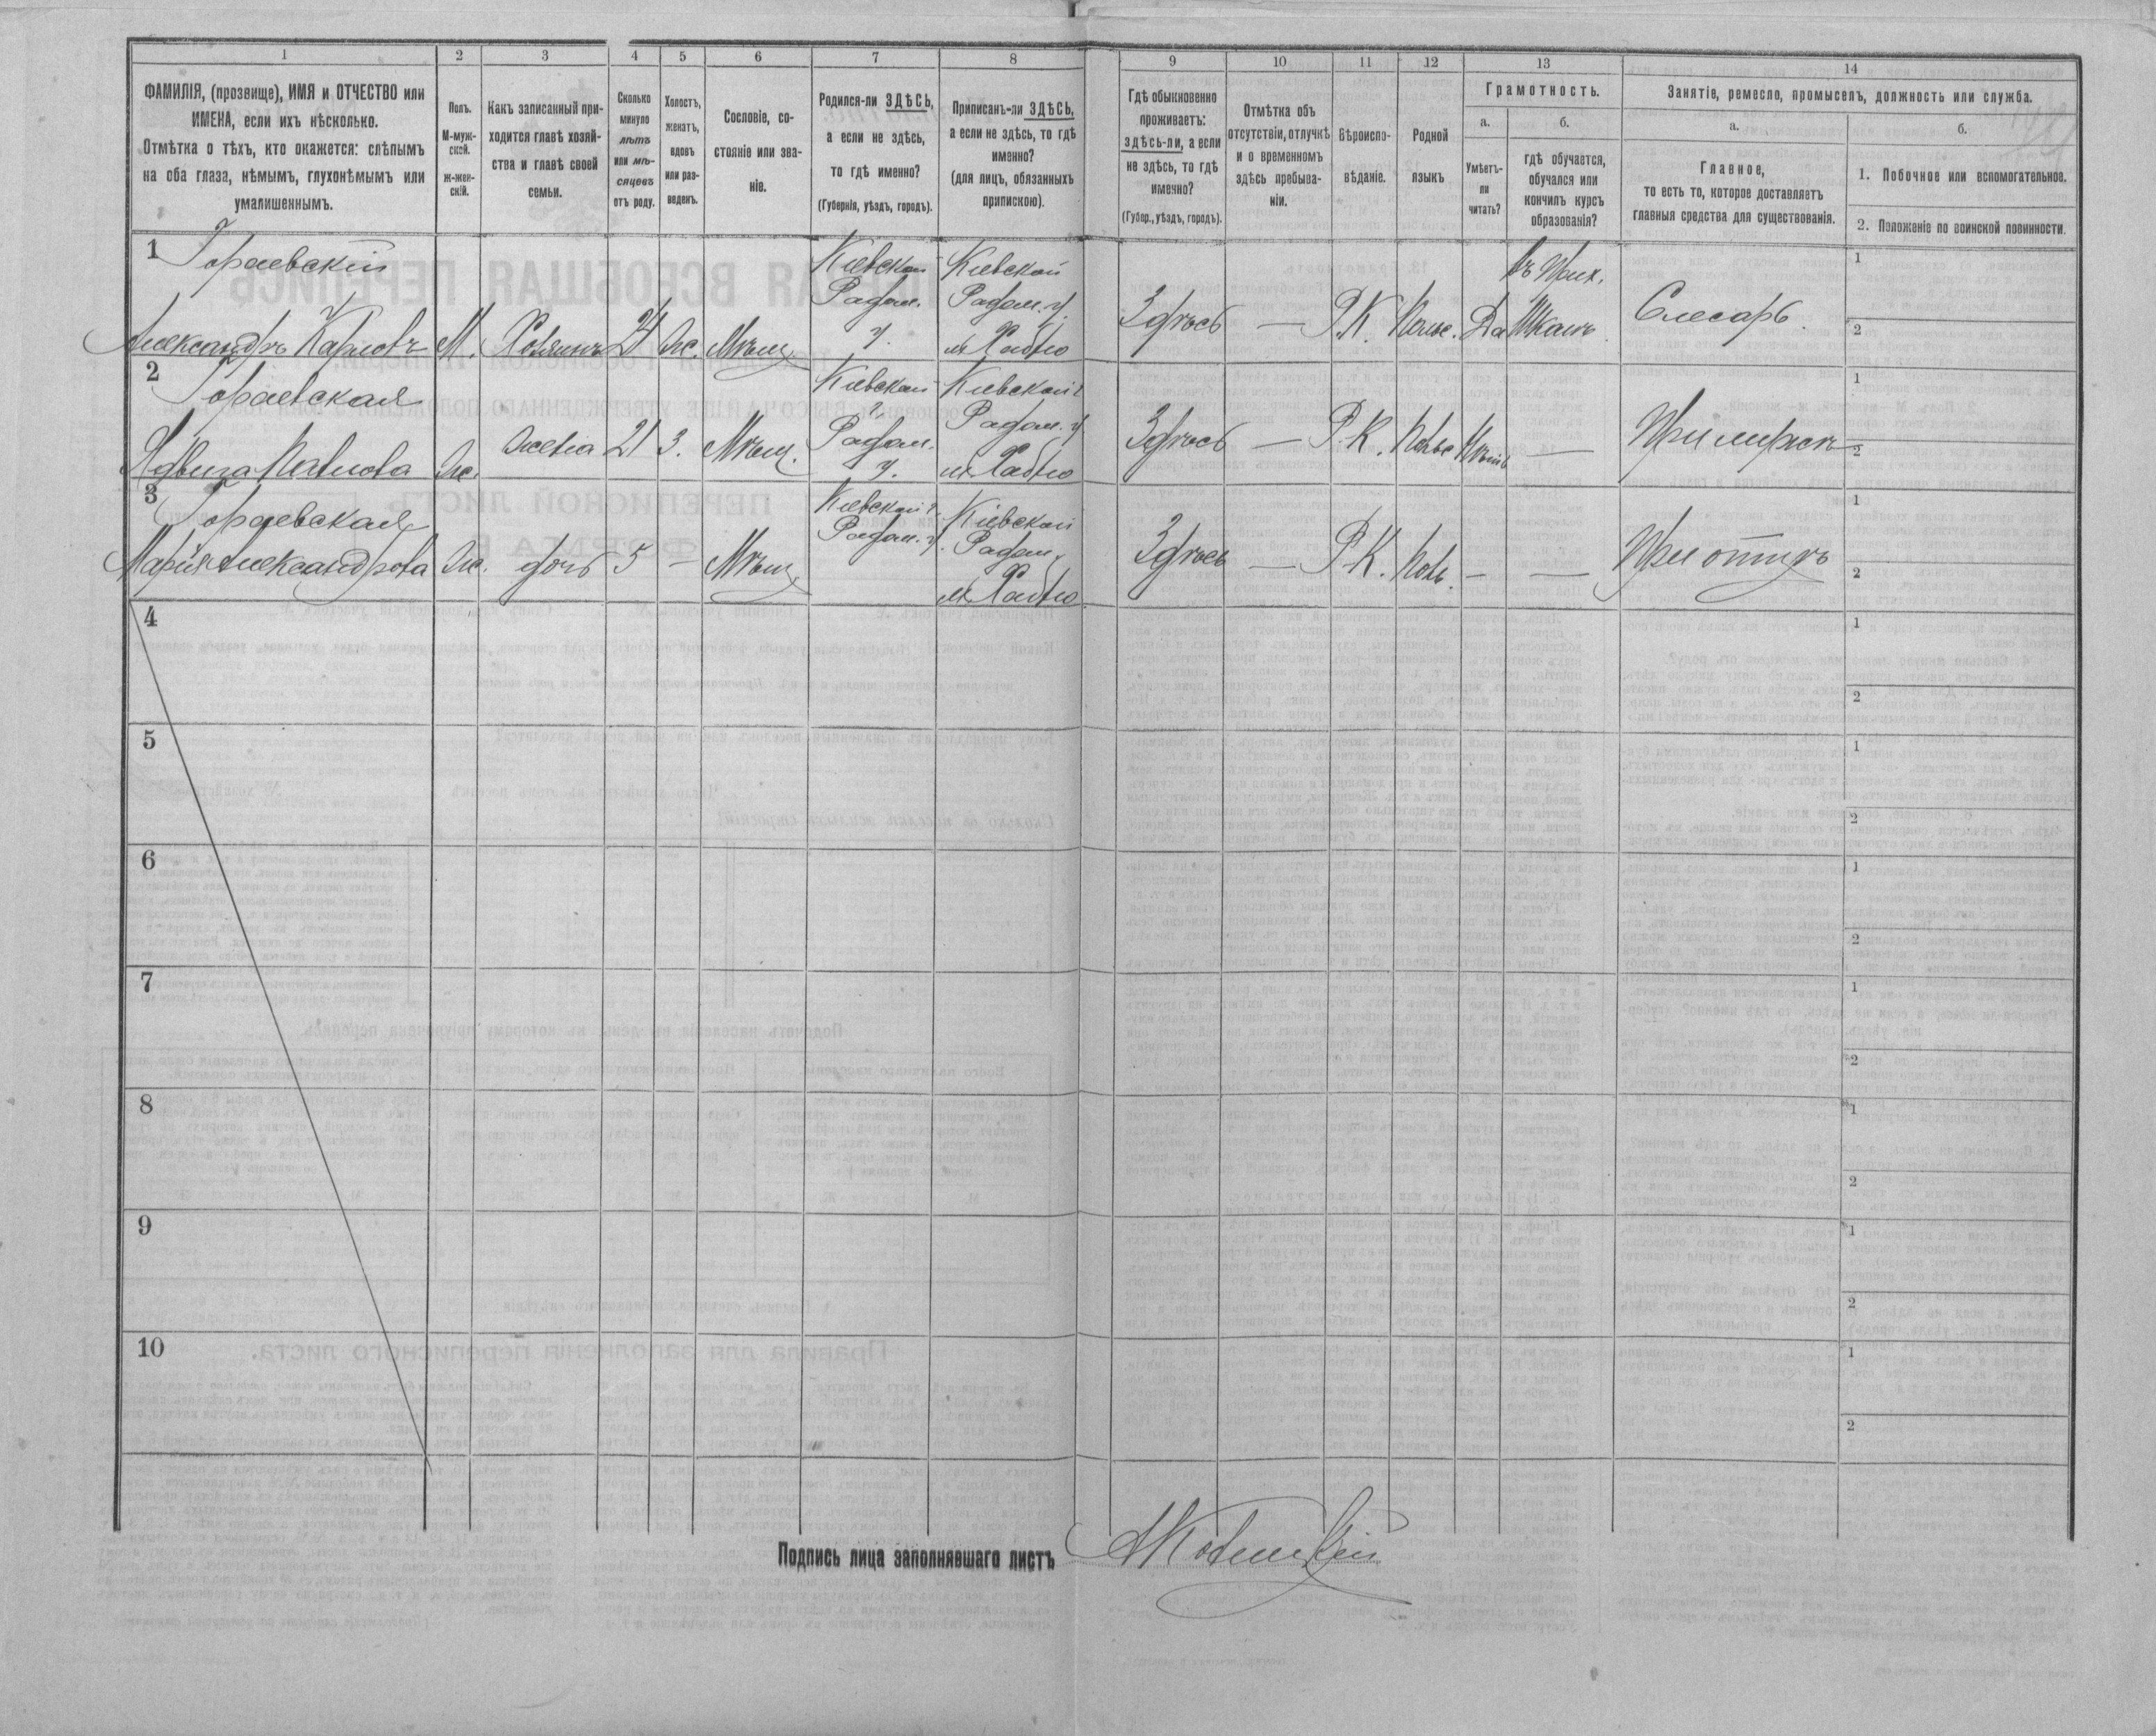 1 2 3 4 5 6 7 8 9 10 11 12 13 14
ФАМИЛІЯ, (прозвище), ИМЯ и ОТЧЕСТВО или
ИМЕНА, если ихъ нѣсколько.
Отмѣтка о тѣхъ, кто окажется: слѣпымъ
на оба глаза, нѣмымъ, глухонѣмымъ или
умалишеннымъ.
Полъ.
М-муж-
ской.
ж-жен-
скій.
Какъ записанный при-
ходится главѣ хозяй-
ства и главѣ своей
семьи.
Сколько
минуло
лѣтъ
или мѣ-
сяцевъ
отъ роду.
Холостъ,
женатъ,
вдовъ
или раз-
веденъ.
Сословіе, со-
стояніе или зва-
ніе.
Родился-ли ЗДѢСЬ,
а если не здѣсь,
то гдѣ именно?
(Губернія, уѣздъ, городъ).
Приписанъ-ли ЗДѢСЬ,
а если не здѣсь, то гдѣ
именно?
(для лицъ, обязанныхъ
припискою).
Гдѣ обыкновенно
проживаетъ:
здѣсь-ли, а если
не здѣсь, то гдѣ
именно?
(Губер., уѣздъ, городъ).
Отмѣтка объ
отсутствіи, отлучкѣ
и о временномъ
здѣсь пребыва-
ніи.
Вѣроиспо-
вѣданіе.
Родной
языкъ
Грамотность.
а.
Умѣетъ-
ли
читать?
б.
гдѣ обучается,
обучался или
кончилъ курсъ
образованія?
Занятіе, ремесло, промыселъ, должность или служба.
а.
Главное,
то есть то, которое доставляетъ
главныя средства для существованія.
б.
1. Побочное или вспомогательное.
2. Положеніе по воинской повинности.
1 Гораевскій
Александръ Карловъ М. Хозяинъ 24 Ж. Мѣщ
Кіевской
Радом.
у.
Кіевской
Радом. у.
м. Хабно
Здѣсь — Р.К. Польс. Да
въ Прих.
Школѣ
Слесарь.
1
2
2 Гораевская
Ядвига Павлова Ж. жена 21 З. Мѣщ.
Кіевской
г.
Радом.
у.
Кіевской г
Радом. у
м. Хабно
Здѣсь — Р.К. Польс Нѣтъ —
При мужѣ
1
2
3 Гораевская
Марія Александрова Ж. дочь 5 — Мѣщ
Кіевской г.
Радом. у.
Кіевской
Радом. у
м. Хабно
Здѣсь — Р.К. Поль. — —
При отцѣ
1
2
4
1
2
5
1
2
6
1
2
7
1
2
8
1
2
9
1
2
10
1
2
Подпись лица заполнявшаго листъ